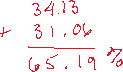 34.13
+ 31.06
65.19 %